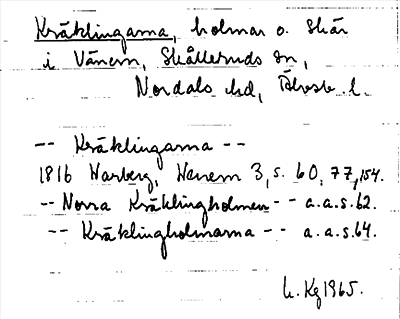 Kräklingarna, holmar o. skär
i Vänern, Skålleruds sn,
Nordals hd, Älvsb. l.
-- Kräklingarna --
1816 Warberg, Wenern 3, s. 60, 77, 154.
-- Norra Kräklingholmen -- a.a.s.62.
-- Kräklingholmarna -- a.a.s.64.
Kg 1965.